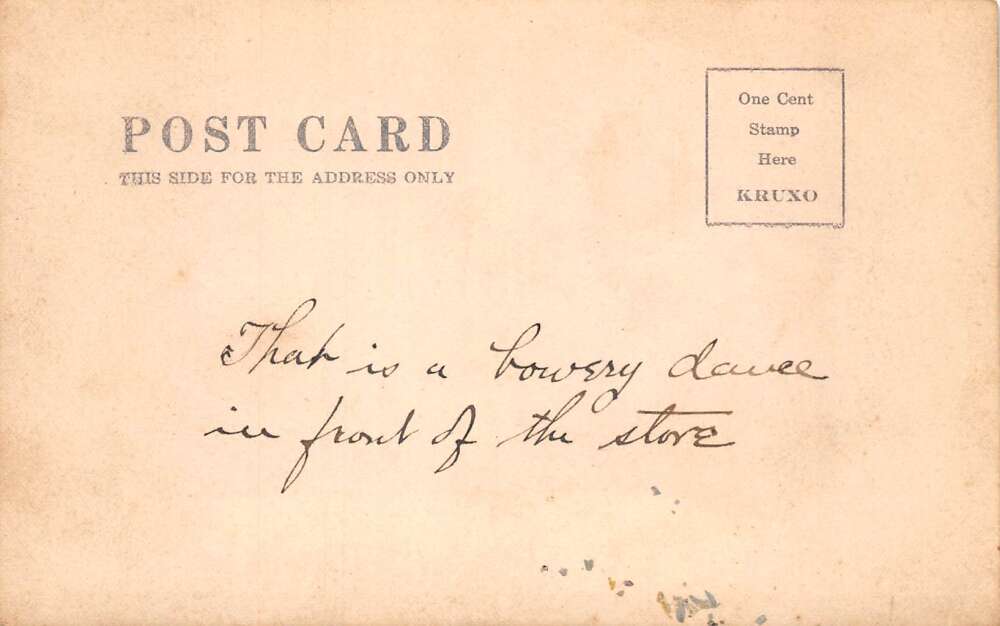 POST CARD
THIS SIDE FOR THE ADDRESS ONLY
One Cent
Stamp
Here
KRUXO
That is a bowery dance
in front of the store